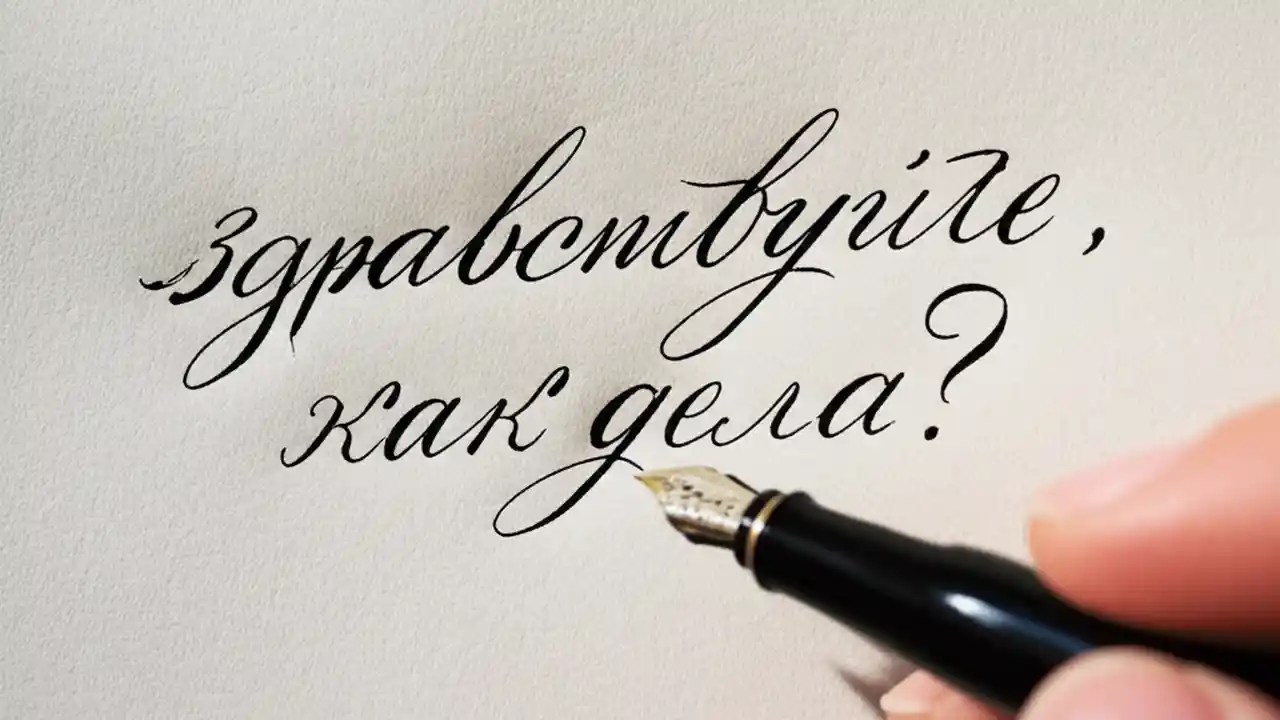 здравствуйте,
как дела?